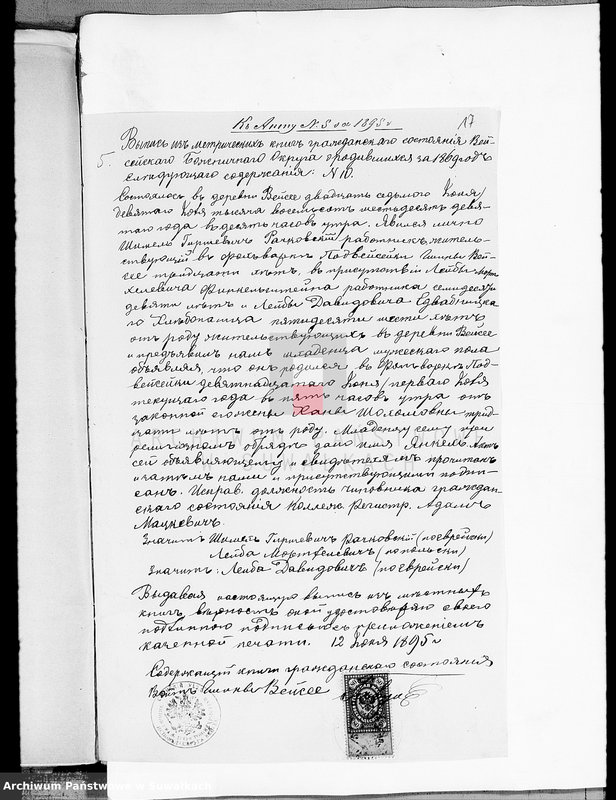 Къ Акту N. 5 за 1895 г
17
5.
Выпись изъ метрическихъ книгъ гражданскаго состоянія Вей-
сейскаго Божничнаго Округа о родившихся за 1869 годъ
слѣдующаго содержанія: N 10.
Состоялось въ деревнѣ Вейсее двадцать седьмого Іюня/
девятаго Юля тысяча восемьсотъ шестьдесятъ девя-
таго года въ десять часовъ утра. Явился лично
Шимель Гиршевичъ Рачковскій работникъ, житель-
ствующій въ фольваркѣ Подвейсейки Гмины Вей-
сее тридцати лѣтъ, въ присутствіи Лейбы
хелевича Финкельштейна работника семидесяти
девяти лѣтъ и Лейбы Давидовича
го Хлѣбопашца пятидесяти шести лѣтъ
отъ роду жительствующихъ въ деревнѣ Вейсее
и предъявилъ намъ младенца мужескаго пола
объявляя, что онъ родился въ Фольваркѣ Под-
вейсейки девятнадцатаго Іюня/перваго Юля
текущаго года въ пять часовъ утра отъ
законной его жены Ханы Шоломовны трид-
цати лѣтъ отъ роду. Младенцу сему при
религіозномъ обрядѣ дано имя Янкель. Актъ
сей объявляющему и свидѣтелямъ прочитанъ
и затѣмъ нами и присутствующими подпи-
санъ. Исправ. должность чиновника граждан-
скаго состоянія Коллеж. Регистр. Адамъ
Мацкевичъ.
Значитъ Шимель Гиршевичъ Рачковскій (по еврейски)
Лейба Мортхелевичъ (по польски)
Значитъ: Лейба Давидовичъ (по еврейски)
Выдавая настоящую выпись изъ мѣстныхъ
книгъ, вѣрность оной удостовѣряю своего
подписью съ приложеніемъ
казенной печати. 12 Іюня 1895 г
Содержащій книги гражданскаго состоянія
Войтъ Гмины Вейсее
Archiwum Państwowe w Suwałkach